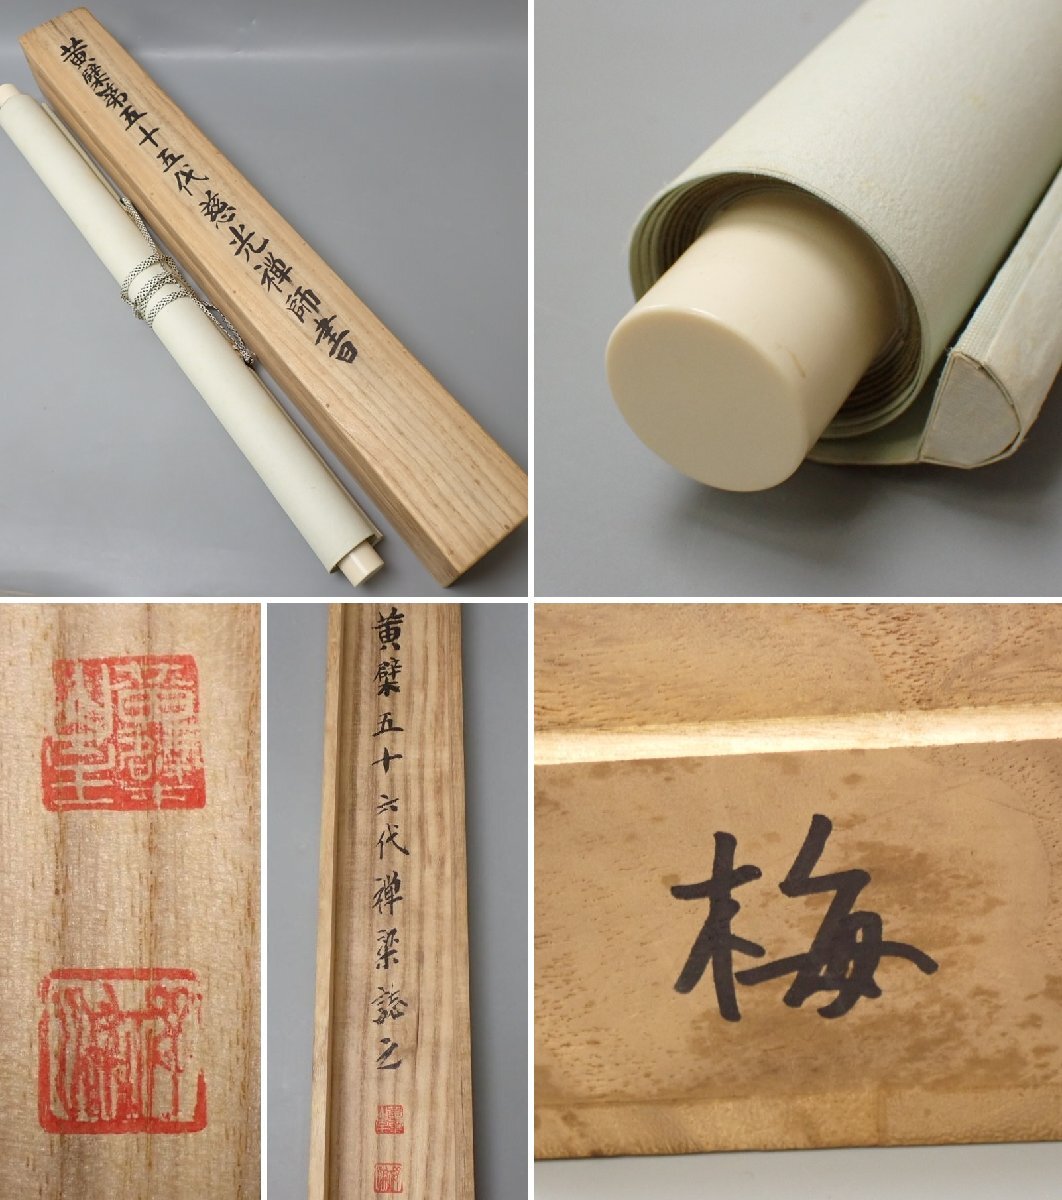 黄檗第五十五代慈光禅師書
黄檗五十六代禅梁誌之
梅